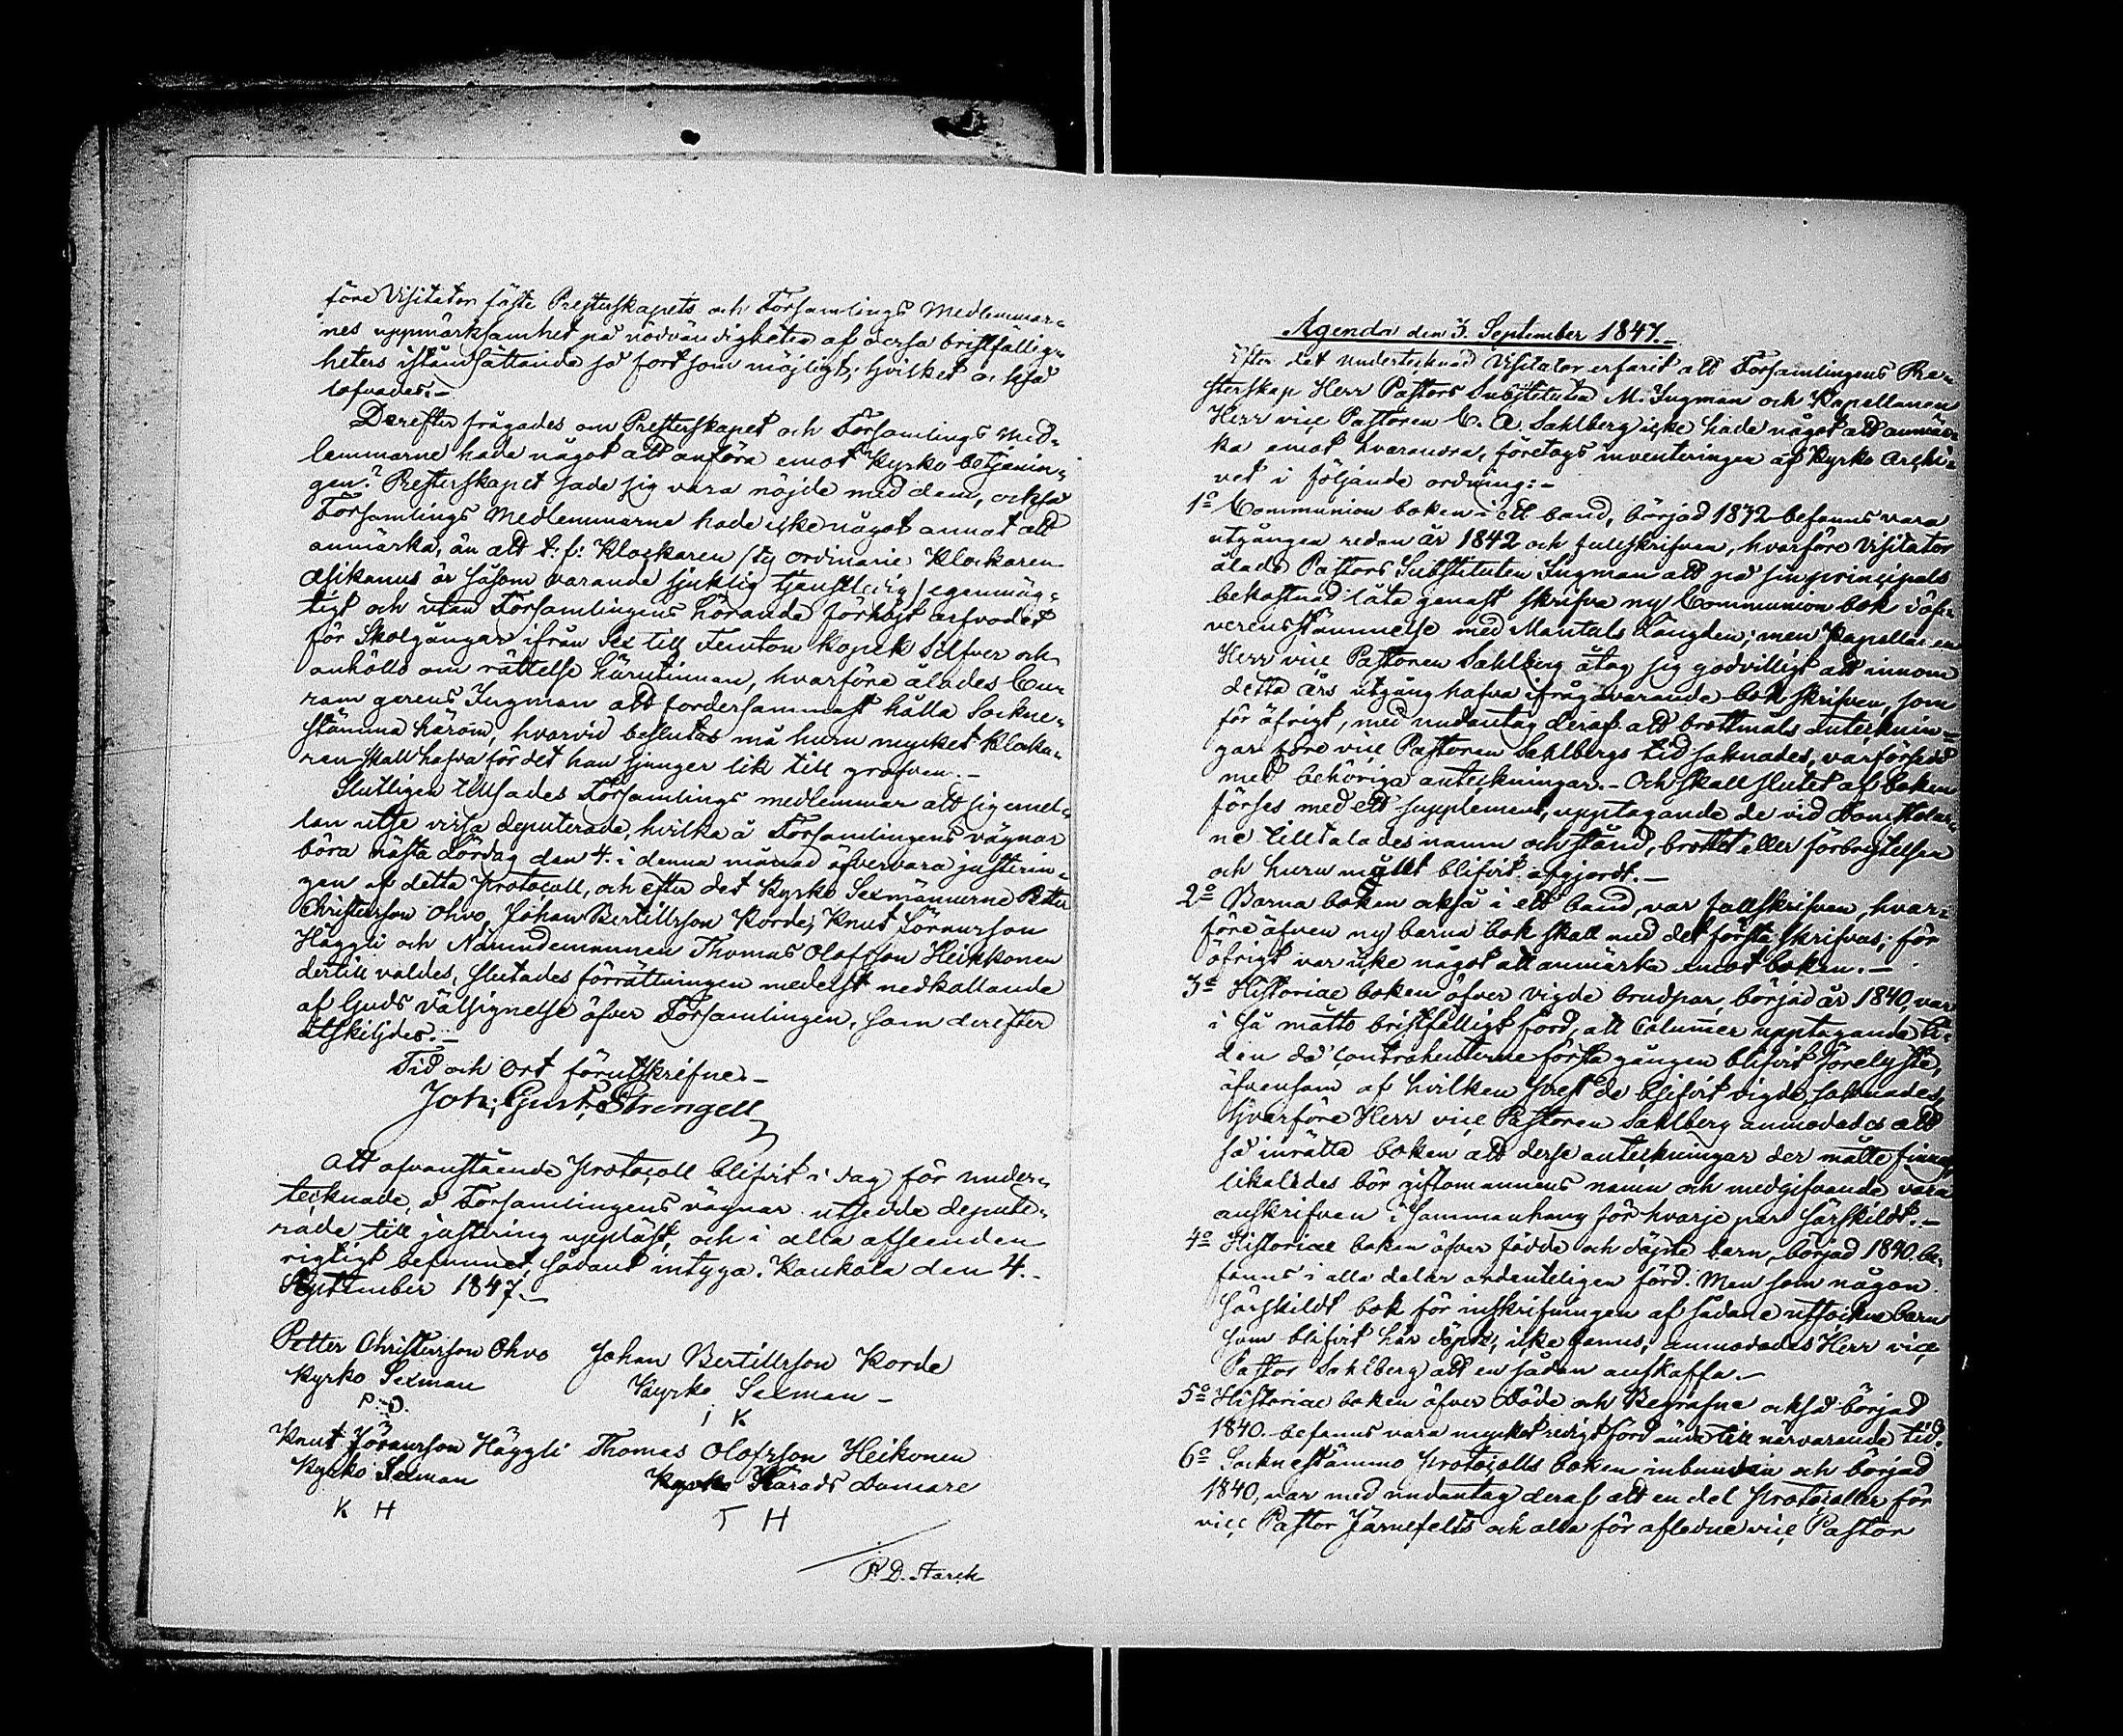 före Visitator fäste Presterskapets och Församlings Medlemmar-
nes uppmärksamhet på nödvändigheten af dessa bristfällig-
heters iståndsättande så fort som möjligt; hvilket också
lofvades.-
Derefter frågades om Presterskapet och Församlings Med-
lemmarne hade något att anföra emot Kyrko-betjenin-
gen? Presterskapet sade sig vara nöjde med dem, också
Församlings Medlemmarne hade icke något annat att
anmärka, än att t: f: Klockaren /ty ordinarie Klockaren
Asikanus är såsom varande sjuklig tjenstledig/ egenmäg-
tigt och utan Församlingens hörande förhöjt arfvodet
för Skolgångar ifrån Sex till Femton Kopek Silfver och
anhölls om rättelse härutinnan, hvarföre ålades Cu-
ram gerens Ingman att fordersammast hålla Sockne-
stämma härom, hvarvid beslutas må huru mycket Klocka-
ren skall hafva för det han sjunger lik till grafven.-
Slutligen tillsades Församlings medlemmar att sig emel-
lan utse vissa deputerade, hvilka å Församlingens vägnar
böra nästa Lördag den 4. i denna månad öfvervara justerin-
gen af detta Protocoll, och efter det Kyrko Sexmännerne Petter
Christersson Ohvo, Johan Bertillsson Korde, Knut Göransson
Häggli och Nämndemannen Thomas Olofsson Heikkonen
dertill valdes, slutades förrättningen medelst nedkallande
af Guds välsignelse öfver Församlingen, som derefter
åtskiljdes.-
Tid och Ort förutskrifne.-
Joh: Gust: Strengell
Att ofvanstående Protocoll blifvit i dag för under-
tecknade, å Församlingens vägnar utsedde depute-
rade till justering uppläst, och i alla afseenden
rigtigt befunnet, sådant intyga. Kaukola den 4.
September 1847.-
Petter Christersson Ohvo Johan Bertillsson Korde
Kyrko Sexman Kyrko Sexman-
P. O. I K
Knut Göransson Häggli Thomas Olofsson Heikonen
Kyrko Sexman Härads Domare
K H T H
P. D. Starck
Agenda den 3. September 1847.-
Efter det undertecknad Visitator erfarit att Församlingens Pre-
sterskap Herr Pastors Substituten M. Ingman och Kapellanen
Herr vice Pastoren C. A. Sahlberg icke hade något att anmär-
ka emot hvarandra, företogs inventeringen af Kyrko Archi-
vet i följande ordning:-
1o Communion boken i ett band, börjad 1832 befanns vara
utgången redan år 1842 och fullskrifven, hvarföre Visitator
ålade Pastors Substituten Ingman att på sin principals
bekostnad låta genast skrifva ny Communion bok i öf-
verensstämmelse med Mantals Längden; men Kapellanen
Herr vice Pastoren Sahlberg åtog sig godvilligt att innom
detta års utgång hafva ifrågavarande bok skrifven, som
för öfrigt, med undantag deraf att brottmåls anteckning-
gar före vice Pastoren Sahlbergs tid saknades, var försedd
med behöriga anteckningar.- Och skall slutet af boken
förses med ett supplement, upptagande de vid Domstolar-
ne tilltalades namn och stånd, brottet eller förbrytelsen
och huru målet blifvit afgjordt.-
2o Barna boken också i ett band, var fullskrifven, hvar-
före äfven ny barna bok skall med det första skrifvas; för
öfrigt var icke något att anmärka emot boken.-
3o Historiae boken öfver vigde brudpar, börjad år 1840, var
i så måtto bristfälligt förd, att Columner upptagande ti-
den då contrahenterne första gången blifvit förelyste,
äfvensom af hvilken Prest de blifvit vigde, saknades,
hvarföre Herr vice Pastoren Sahlberg anmodades att
så inrätta boken att desse anteckningar der måtte finnas,
likaledes bör giftomannens namn och medgifvande vara
anskrifven i sammanhang för hvarje par särskildt.-
4o Historiae boken öfver födde och döpte barn, börjad 1840. be-
fanns i alla delar ordenteligen förd. Men som någon
särskildt bok för inskrifningen af sådane utsockne barn
som blifvit här döpte, icke fanns; anmodades Herr vice
Pastor Sahlberg att en sådan anskaffa.-
5o Historiae boken öfver Döde och Begrafne också börjad
1840. befanns vara mycket redigt förd ända till närvarande tid.
6o Socknestämmo Protocolls boken inbunden och börjad
1840, var med undantag deraf att en del Protocoller för
vice Pastor Järnefelts och alla för aflidne vice Pastor